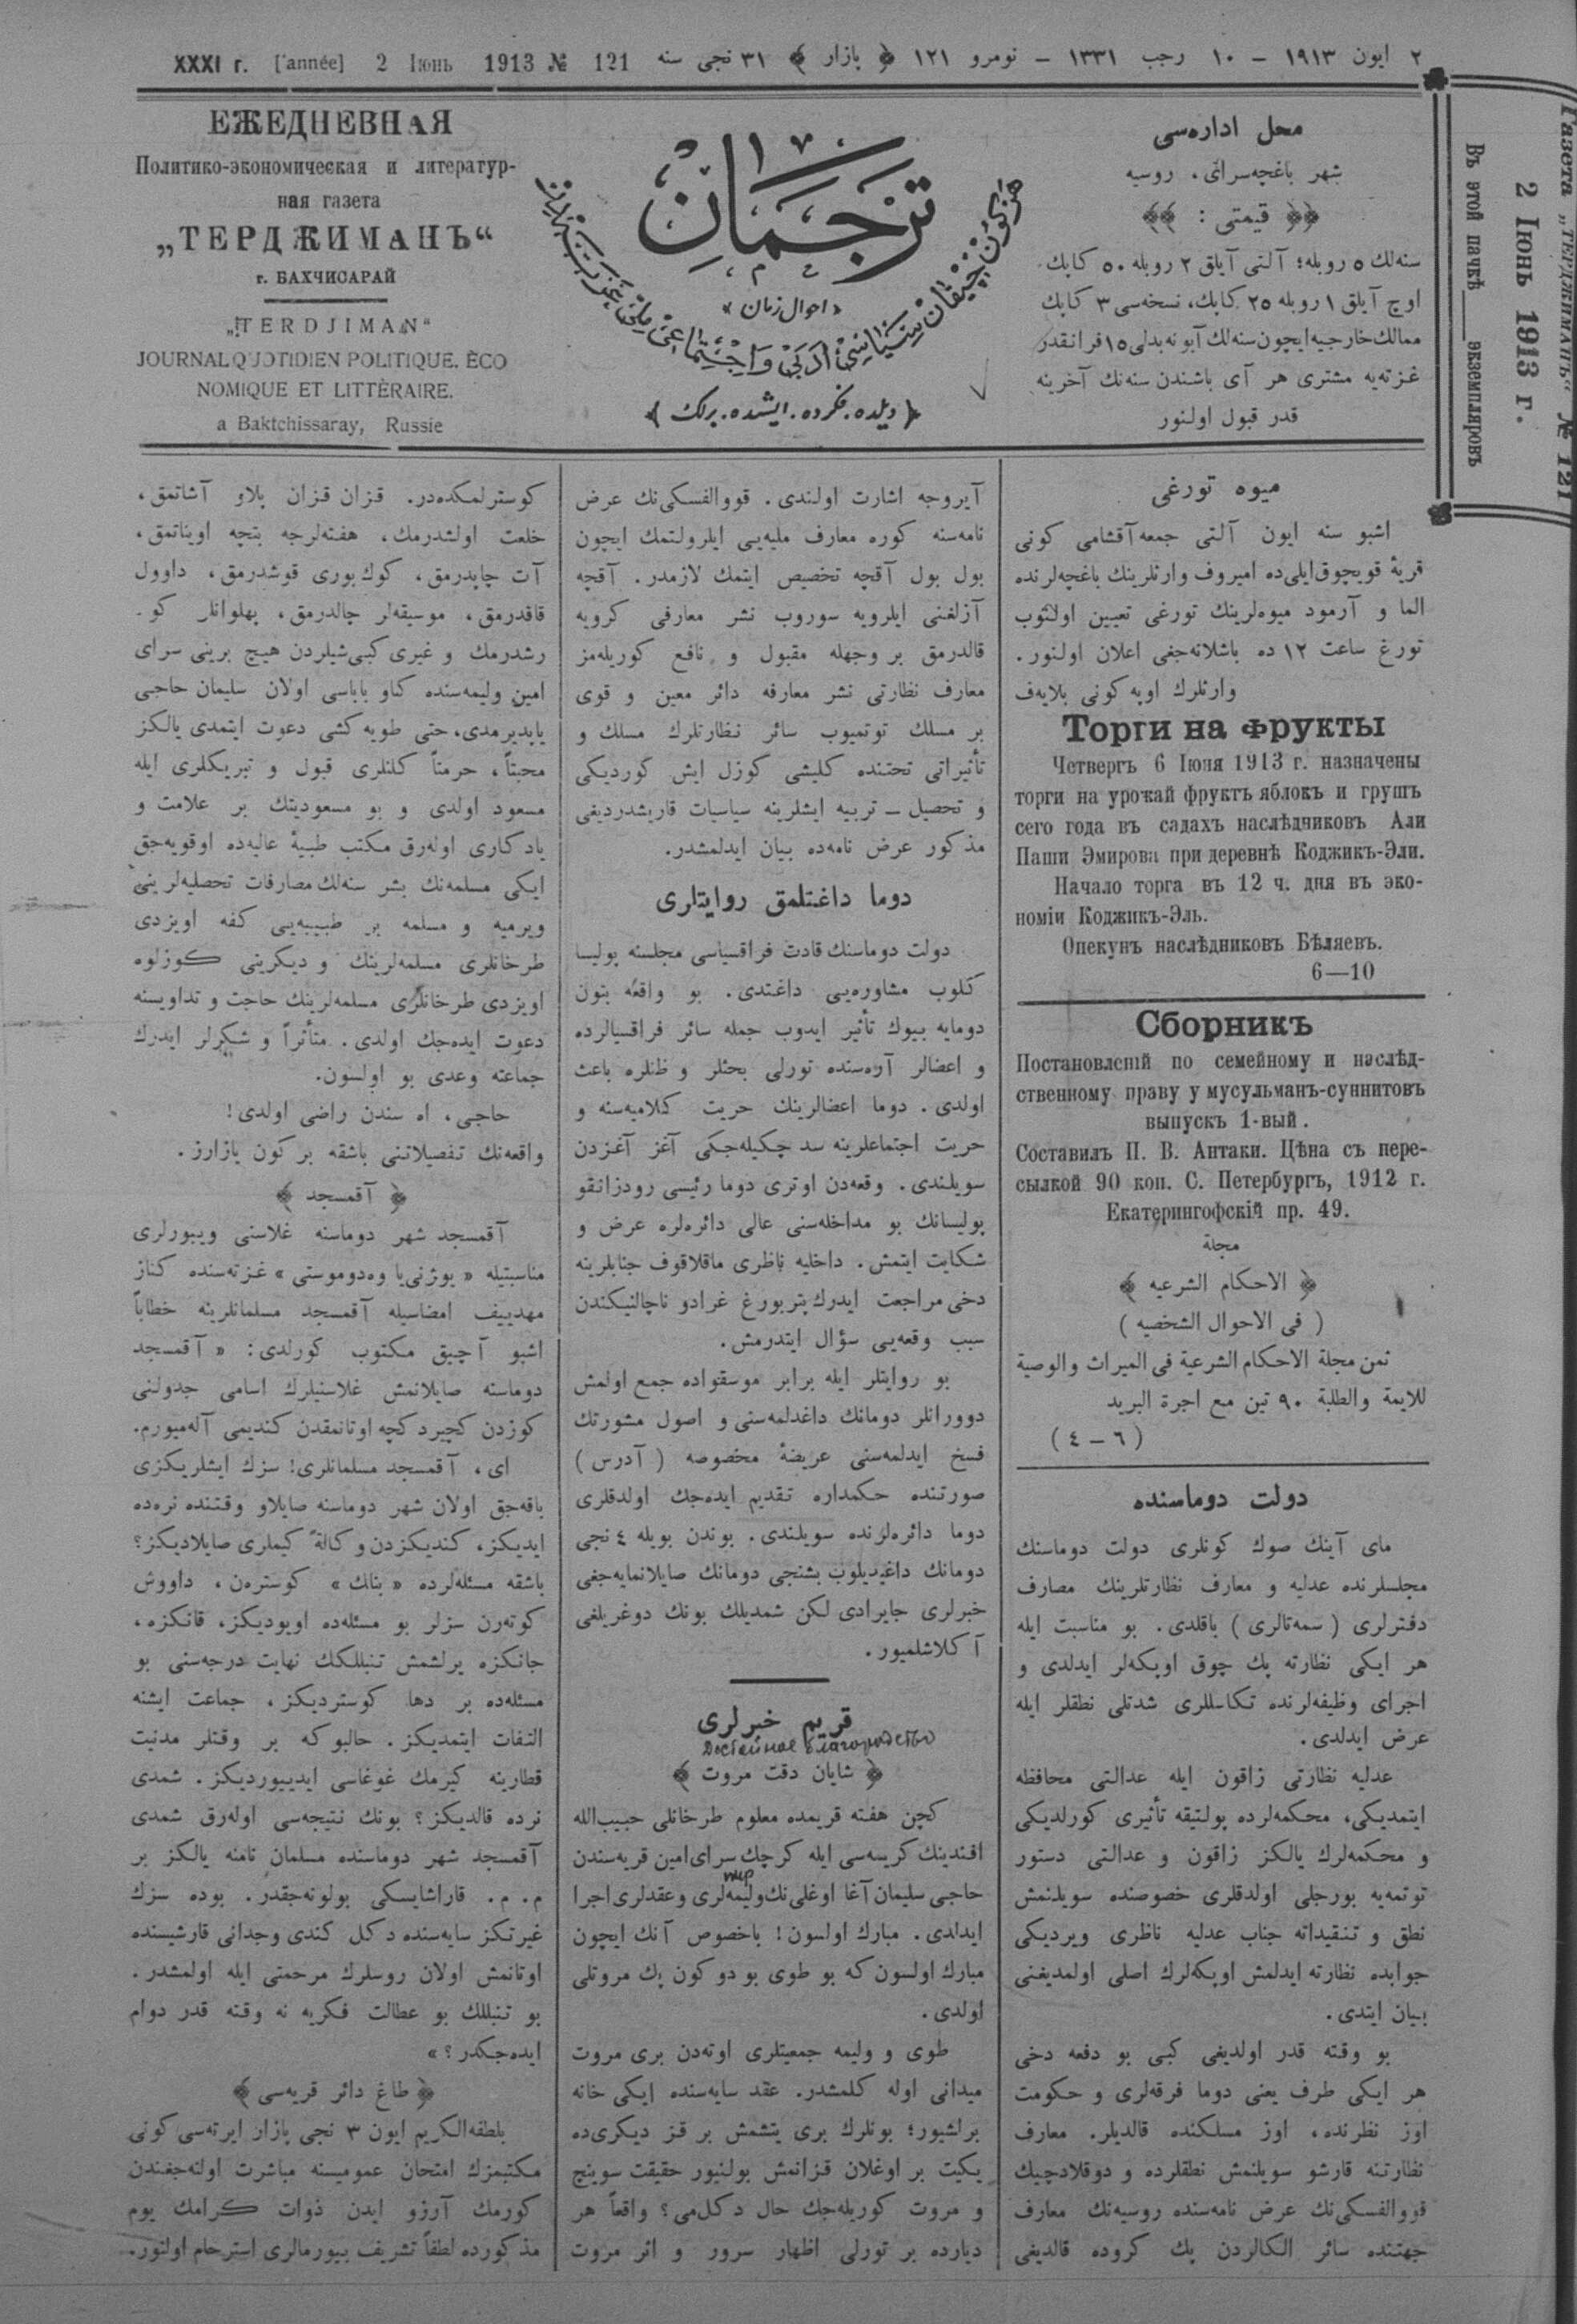 XXXI г. [année] 2 Іюнь 1913 № 121
٢ ايون ١٩١٣ – ١٠ رجب ١٣٣١ – نومرو ١٢١ ﴿ بازار ﴾ ٣١ نجى سنه
ЕЖЕДНЕВНАЯ
Политико-экономическая и литератур-
ная газета
„ТЕРДЖИМАНЪ“
г. БАХЧИСАРАЙ
„TERDJIMAN“
JOURNAL QUOTIDIEN POLITIQUE. ÈCO
NOMIQUE ET LITTÈRAIRE.
a Baktchissaray, Russie
ترجمان
«احوال زمان»
هر كون چيقان سياسى ادبى و اجتماعى ملى غزته در
﴿ ديلده. فكرده. ايشده. برلك ﴾
محل اداره‌سى
شهر باغچه‌سراى، روسيه
﴿﴿ قيمتى : ﴾﴾
سنه‌لك ٥ روبله؛ آلتى آيلق ٢ روبله ٥٠ كاپك.
اوچ آيلق ١ روبله ٢٥ كاپك، نسخه‌سى ٣ كاپك
ممالك خارجيه ايچون سنه‌لك آبونه بدلى ١٥ فرانقدر
غزته‌يه مشترى هر آى باشندن سنه‌نك آخرينه
قدر قبول اولنور
Газета „ТЕРДЖИМАНЪ“ № 121
2 Іюнь 1913 г.
Въ этой пачкѣ ____ экземпляровъ
ميوه تورغى
اشبو سنه ايون آلتى جمعه آقشامى كونى
قريۀ قويچوق ايلى‌ده اميروف وارثلرينك باغچه‌لرنده
الما و آرمود ميوه‌لرينك تورغى تعيين اولنوب
تورغ ساعت ١٢ ده باشلانه‌جغى اعلان اولنور.
وارثلرك اوپه كونى بلايه‌ف
Торги на фрукты
Четвергъ 6 Іюня 1913 г. назначены
торги на урожай фруктъ яблокъ и грушъ
сего года въ садахъ наслѣдниковъ Али
Паши Эмирова при деревнѣ Коджикъ-Эли.
Начало торга въ 12 ч. дня въ эко-
номіи Коджикъ-Эль.
Опекунъ наслѣдниковъ Бѣляевъ.
6—10
Сборникъ
Постановленій по семейному и наслѣд-
ственному праву у мусульманъ-суннитовъ
выпускъ 1-вый.
Составилъ П. В. Антаки. Цѣна съ пере-
сылкой 90 коп. С. Петербургъ, 1912 г.
Екатерингофскій пр. 49.
مجلة
﴿ الاحكام الشرعيه ﴾
( فى الاحوال الشخصيه )
ثمن مجلة الاحكام الشرعية فى الميراث والوصية
للايمة والطلبة ٩٠ تين مع اجرة البريد
( ٦ – ٤ )
دولت دوماسنده
ماى آينك صوك كونلرى دولت دوماسنك
مجلسلرنده عدليه و معارف نظارتلرينك مصارف
دفترلرى ( سمه‌تالرى ) باقلدى. بو مناسبت ايله
هر ايكى نظارته پك چوق اوپكه‌لر ايدلدى و
اجراى وظيفه‌لرنده تكاسللرى شدتلى نطقلر ايله
عرض ايدلدى.
عدليه نظارتى زاقون ايله عدالتى محافظه
ايتمديكى، محكمه‌لرده پولتيقه تأثيرى كورلديكى
و محكمه‌لرك يالكز زاقون و عدالتى دستور
توتمه‌يه بورجلى اولدقلرى خصوصنده سويلنمش
نطق و تنقيداته جناب عدليه ناظرى ويرديكى
جوابده نظارته ايدلمش اوپكه‌لرك اصلى اولمديغنى
بيان ايتدى.
بو وقته قدر اولديغى كبى بو دفعه دخى
هر ايكى طرف يعنى دوما فرقه‌لرى و حكومت
اوز نظرنده، اوز مسلكنده قالديلر. معارف
نظارتنه قارشو سويلنمش نطقلرده و دوقلادچيك
قووالفسكى‌نك عرض نامه‌سنده روسيه‌نك معارف
جهتنده سائر الكالردن پك كروده قالديغى
آيروجه اشارت اولندى. قووالفسكى‌نك عرض
نامه‌سنه كوره معارف مليه‌يى ايلرولتمك ايچون
بول بول آقچه تخصيص ايتمك لازمدر. آقچه
آزلغنى ايلرويه سوروب نشر معارفى كرويه
قالدرمق بر وجهله مقبول و نافع كوريله‌مز
معارف نظارتى نشر معارفه دائر معين و قوى
بر مسلك توتميوب سائر نظارتلرك مسلك و
تأثيراتى تحتنده كليشى كوزل ايش كورديكى
و تحصيل – تربيه ايشلرينه سياسيات قاريشدرديغى
مذكور عرض نامه‌ده بيان ايدلمشدر.
دوما داغتلمق روايتلرى
دولت دوماسنك قادت فراقسياسى مجلسنه پوليسا
كلوب مشاوره‌يى داغتدى. بو واقعه بتون
دومايه بيوك تأثير ايدوب جمله سائر فراقسيالرده
و اعضالر آره‌سنده تورلى بحثلر و ظنلره باعث
اولدى. دوما اعضالرينك حريت كلاميه‌سنه و
حريت اجتماعلرينه سد چكيله‌جكى آغز آغزدن
سويلندى. وقعه‌دن اوترى دوما رئيسى رودزانقو
پوليسانك بو مداخله‌سنى عالى دائره‌لره عرض و
شكايت ايتمش. داخليه ناظرى ماقلاقوف جنابلرينه
دخى مراجعت ايدرك پتربورغ غرادو ناچالنيكندن
سبب وقعه‌يى سؤال ايتدرمش.
بو روايتلر ايله برابر موسقواده جمع اولمش
دوورانلر دومانك داغدلمه‌سنى و اصول مشورتك
فسخ ايدلمه‌سنى عريضۀ مخصوصه ( آدرس )
صورتنده حكمداره تقديم ايده‌جك اولدقلرى
دوما دائره‌لرنده سويلندى. بوندن بويله ٤ نجى
دومانك داغيديلوب بشنجى دومانك صايلانمايه‌جغى
خبرلرى جايرادى لكن شمديلك بونك دوغريلغى
آكلاشلميور.
قريم خبرلرى
Достойное благородство
﴿ شايان دقت مروت ﴾
كچن هفته قريمده معلوم طرخانلى حبيب‌الله
افندينك كريمه‌سى ايله كرچك سراى‌امين قريه‌سندن
حاجى سليمان آغا اوغلى‌نك وليمه‌لرى و عقدلرى اجرا
ايدلدى. مبارك اولسون! باخصوص آنك ايچون
مبارك اولسون كه بو طوى بو دوكون پك مروتلى
اولدى.
طوى و وليمه جمعيتلرى اوته‌دن برى مروت
ميدانى اوله كلمشدر. عقد سايه‌سنده ايكى خانه
برلشيور؛ بونلرك برى يتشمش بر قز ديكرى‌ده
يكيت بر اوغلان قزانمش بولنيور حقيقت سوينج
و مروت كوريله‌جك حال دكل‌مى؟ واقعاً هر
ديارده بر تورلى اظهار سرور و اثر مروت
كوسترلمكده‌در. قزان قزان پلاو آشاتمق،
خلعت اولشدرمك، هفته‌لرجه بتچه اويناتمق،
آت چاپدرمق، كوك‌بورى قوشدرمق، داوول
قاقدرمق، موسيقه‌لر چالدرمق، پهلوانلر كو-
رشدرمك و غيرى كبى شيلردن هيچ برينى سراى
امين وليمه‌سنده كياو باباسى اولان سليمان حاجى
ياپديرمدى، حتى طويه كشى دعوت ايتمدى يالكز
محبتاً، حرمتاً كلنلرى قبول و تبريكلرى ايله
مسعود اولدى و بو مسعوديتك بر علامت و
يادكارى اوله‌رق مكتب طبيۀ عاليه‌ده اوقويه‌جق
ايكى مسلمه‌نك بشر سنه‌لك مصارفات تحصليه‌لرينى
ويرميه و مسلمه بر طبيبه‌يى كفه اويزدى
طرخانلرى مسلمه‌لرينك و ديكرينى كوزلوه
اويزدى طرخانلرى مسلمه‌لرينك حاجت و تداويسنه
دعوت ايده‌جك اولدى. متأثراً و شكرلر ايدرك
جماعته وعدى بو اولسون.
حاجى، اه سندن راضى اولدى!
واقعه‌نك تفصيلاتنى باشقه بر كون يازارز.
﴿ آقمسجد ﴾
آقمسجد شهر دوماسنه غلاسنى ويبورلرى
مناسبتيله « يوژنى‌يا وه‌دوموستى » غزته‌سنده كناز
مهدييف امضاسيله آقمسجد مسلمانلرينه خطاباً
اشبو آچيق مكتوب كورلدى: « آقمسجد
دوماسنه صايلانمش غلاسنيلرك اسامى جدولنى
كوزدن كچيردكچه اوتانمقدن كنديمى آله‌ميورم.
اى، آقمسجد مسلمانلرى! سزك ايشلريكزى
باقه‌جق اولان شهر دوماسنه صايلاو وقتنده نره‌ده
ايديكز، كنديكزدن وكالةً كيملرى صايلاديكز؟
باشقه مسئله‌لرده « بنلك » كوستره‌ن، داووش
كوته‌رن سزلر بو مسئله‌ده اويوديكز، قانكزه،
جانكزه يرلشمش تنبللكك نهايت درجه‌سنى بو
مسئله‌ده بر دها كوسترديكز، جماعت ايشنه
التفات ايتمديكز. حالبوكه بر وقتلر مدنيت
قطارينه كيرمك غوغاسى ايدييورديكز. شمدى
نرده قالديكز؟ بونك نتيجه‌سى اوله‌رق شمدى
آقمسجد شهر دوماسنده مسلمان نامنه يالكز بر
م. م. قاراشايسكى بولونه‌جقدر. بوده سزك
غيرتكز سايه‌سنده دكل كندى وجدانى قارشيسنده
اوتانمش اولان روسلرك مرحمتى ايله اولمشدر.
بو تنبللك بو عطالت فكريه نه وقته قدر دوام
ايده‌جكدر؟ »
﴿ طاغ دائر قريه‌سى ﴾
بلطفه‌الكريم ايون ٣ نجى بازار ايرته‌سى كونى
مكتبمزك امتحان عموميسنه مباشرت اولنه‌جغندن
كورمك آرزو ايدن ذوات كرامك يوم
مذكورده لطفاً تشريف بيورمالرى استرحام اولنور.